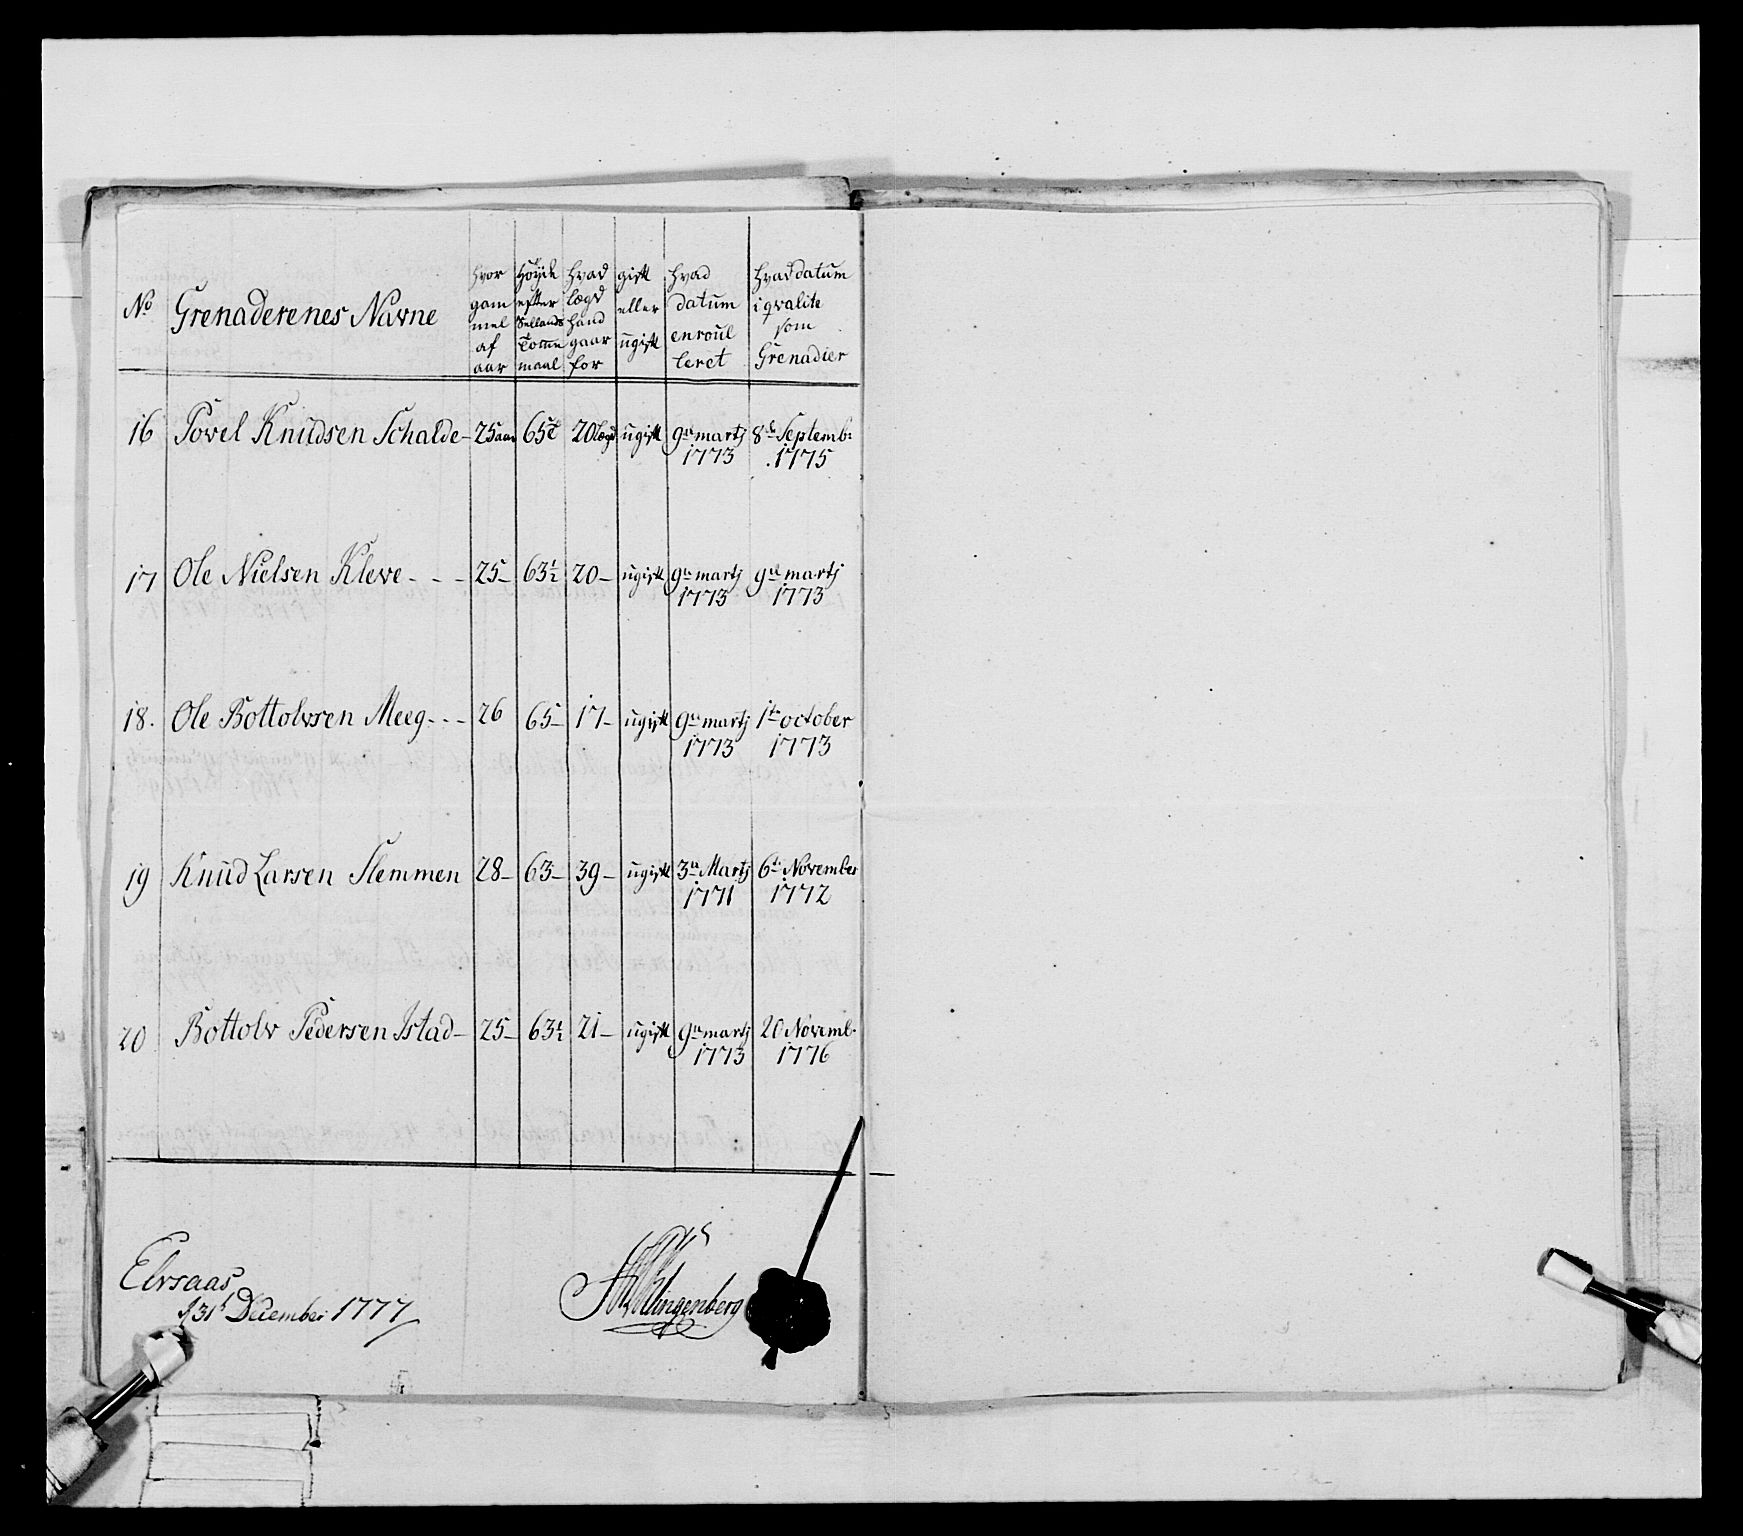 No Grenaderenes Navne | hvor gammel af aar | Høyde efter Sellands Tomme maal | hvad lægd hånd gaar for | gift eller ugift | hvad datum enroulleret | hvad datum i qvalite som Grenadier
16 Povel Knudsen Schalde - 25 aar 65 T 20 lægd ugift 9de martj 1773 8de Septemb: 1775
17 Ole Nielsen Kleve - - - 25 - 63½ 20 - ugift 9de martj 1773 9de martj 1773
18. Ole Bottolvsen Meeg - - - 26 65 - 17 - ugift 9de martj 1773 1te october 1773
19 Knud Larsen Slemmen 28 - 63 - 39 - ugift 3de Martj 1771 6te November 1772
20 Bottolv Pedersen Istad - 25 - 63½ 21 - ugift 9de martj 1773 20 Novemb. 1776
Elvsaas
d 31t December 1777
Klingenberg